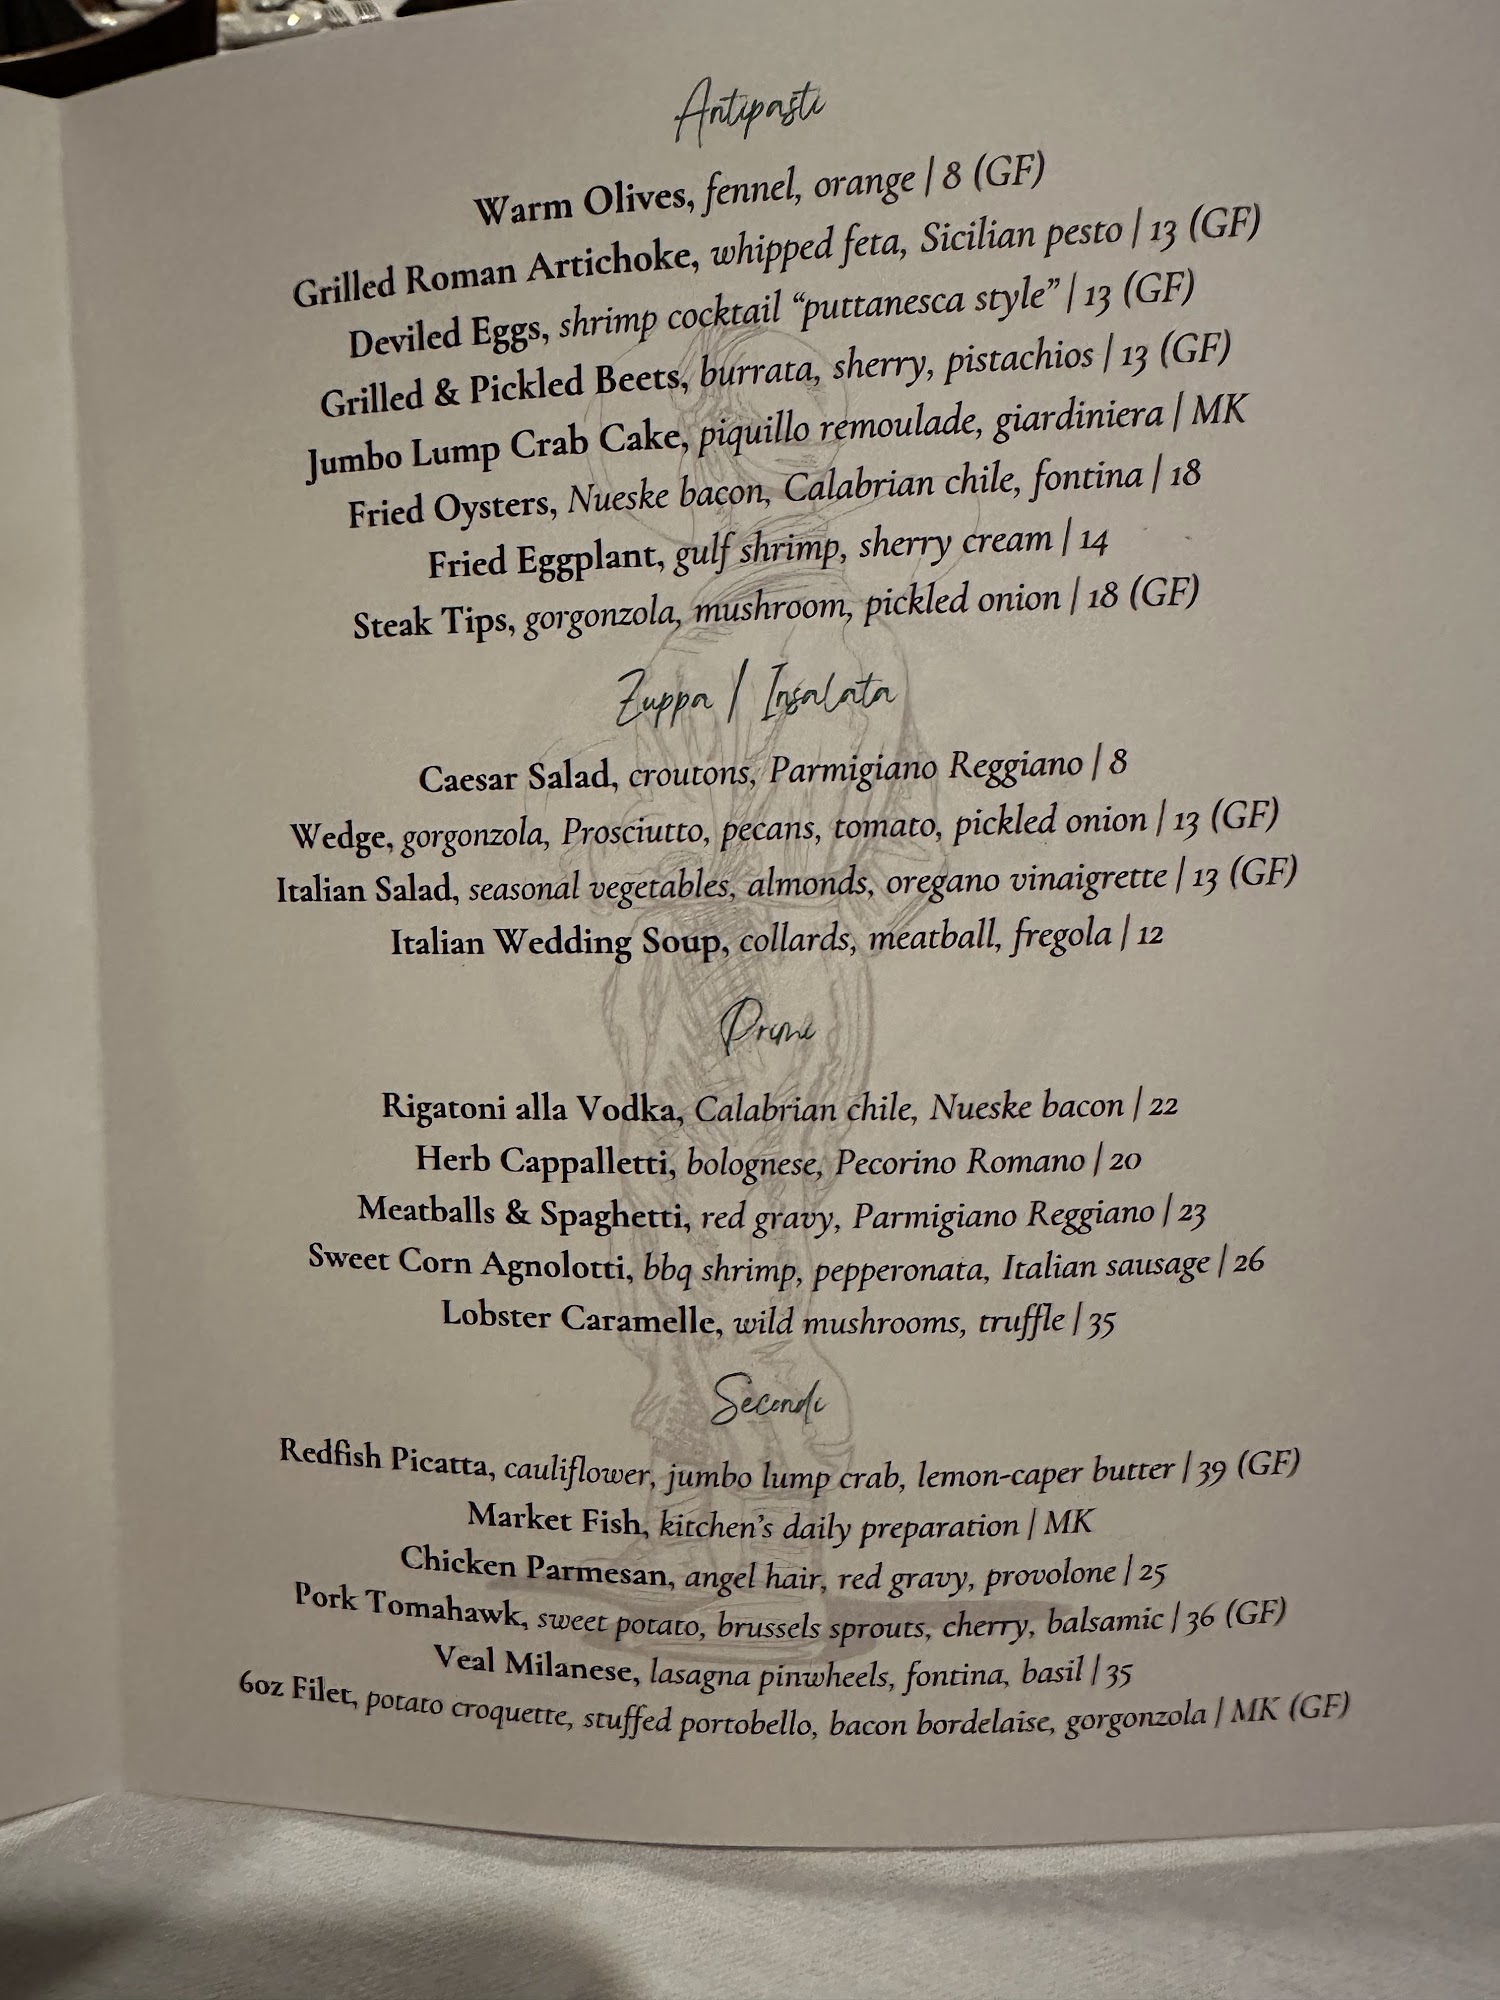 Antipasti
Warm Olives, fennel, orange | 8 (GF)
Grilled Roman Artichoke, whipped feta, Sicilian pesto | 13 (GF)
Deviled Eggs, shrimp cocktail “puttanesca style” | 13 (GF)
Grilled & Pickled Beets, burrata, sherry, pistachios | 13 (GF)
Jumbo Lump Crab Cake, piquillo remoulade, giardiniera | MK
Fried Oysters, Nueske bacon, Calabrian chile, fontina | 18
Fried Eggplant, gulf shrimp, sherry cream | 14
Steak Tips, gorgonzola, mushroom, pickled onion | 18 (GF)
Zuppa / Insalata
Caesar Salad, croutons, Parmigiano Reggiano | 8
Wedge, gorgonzola, Prosciutto, pecans, tomato, pickled onion | 13 (GF)
Italian Salad, seasonal vegetables, almonds, oregano vinaigrette | 13 (GF)
Italian Wedding Soup, collards, meatball, fregola | 12
Primi
Rigatoni alla Vodka, Calabrian chile, Nueske bacon | 22
Herb Cappalletti, bolognese, Pecorino Romano | 20
Meatballs & Spaghetti, red gravy, Parmigiano Reggiano | 23
Sweet Corn Agnolotti, bbq shrimp, pepperonata, Italian sausage | 26
Lobster Caramelle, wild mushrooms, truffle | 35
Secondi
Redfish Picatta, cauliflower, jumbo lump crab, lemon-caper butter | 39 (GF)
Market Fish, kitchen’s daily preparation | MK
Chicken Parmesan, angel hair, red gravy, provolone | 25
Pork Tomahawk, sweet potato, brussels sprouts, cherry, balsamic | 36 (GF)
Veal Milanese, lasagna pinwheels, fontina, basil | 35
6oz Filet, potato croquette, stuffed portobello, bacon bordelaise, gorgonzola | MK (GF)